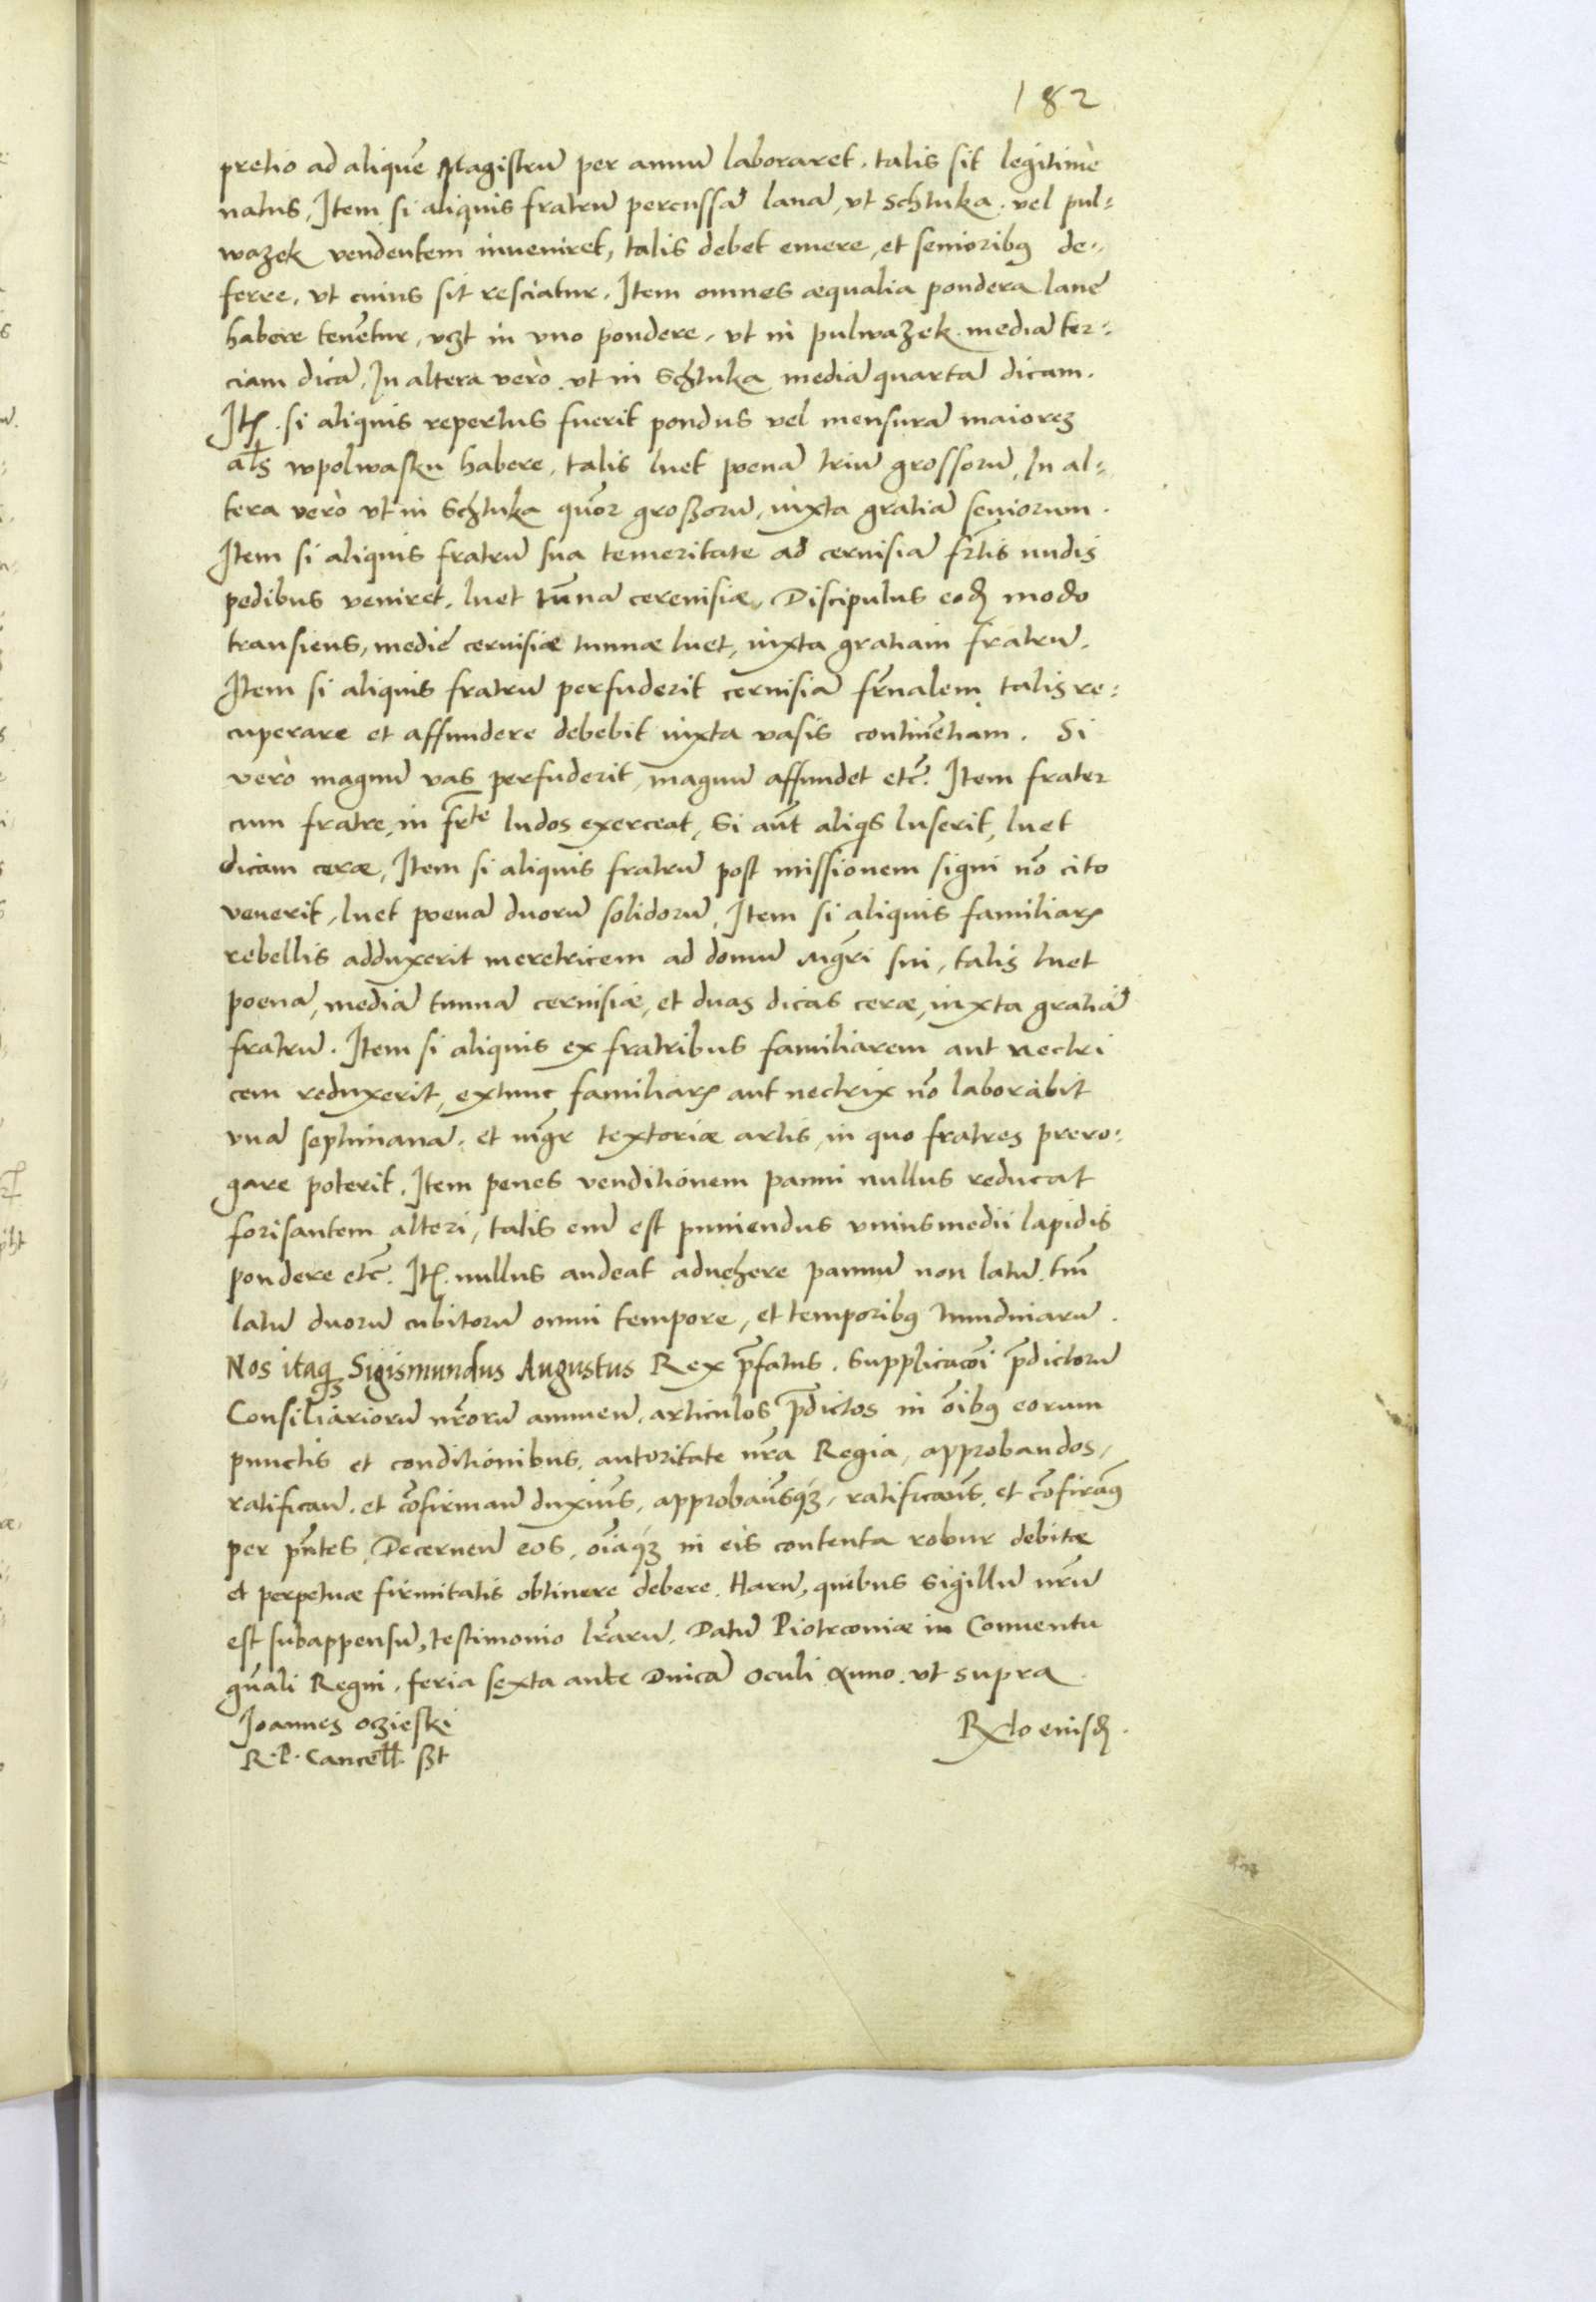 182
pretio ad aliquē Magistrū per annū laboraret. talis sit legitimè
natus, Item si aliquis fratrū percussā lanā, vt Schtuka. vel pul=
wazek vendentem inueniret, talis debet emere, et seniorib9 de=
ferre, vt cuius sit resciatur. Item omnes aequalia pondera lanę
habere tenētur, vzt in vno pondere, vt in pulwazek mediā ter=
ciam dicā, In altera verò vt in Schtuka mediā quartā dicam.
Itē. si aliquis repertus fuerit pondus vel mensurā maiorem
als wpolwasku habere, talis luet poenā triū grossorū, In al=
tera verò vt in Schtuka quōr großorū, iuxta gratiā seniorum.
Item si aliquis fratrū sua temeritate ad ceruisiā frtis nudis
pedibus veniret, luet tūnā cereuisiæ, Discipulus eodē modo
transiens, mediē ceruisiæ tunnæ luet, iuxta gratiam fratrū.
Item si aliquis fratrū perfuderit ceruisiā frnalem talis re=
cuperare et affundere debebit iuxta vasis continētiam. Si
verò magnū vas perfuderit, magnū affundet etc̄. Item frater
cum fratre, in frte ludos exerceat, Si aūt aliqs luserit, luet
dicam ceræ, Item si aliquis fratrū post missionem signi nō cito
venerit, luet poenā duorū solidorū, Item si aliquis familiarē
rebellis adduxerit meretricem ad domū mgri sui, talis luet
poenā, mediā tunnā ceruisiæ, et duas dicas ceræ, iuxta gratiā
fratrū. Item si aliquis ex fratribus familiarem aut nectri
cem reduxerit, extunc familiarē aut nectrix nō laborabit
vnā septimanā. et mgr textoriæ artis, in quo fratres prero=
gare poterit. Item penes venditionem panni nullus reducat
forisantem alteri, talis em̄ est puniendus vnius medii lapidis
pondere etc̄. Itē. nullus audeat aduehere pannū non latū, tm̄
latū duorū cubitorū omni tempore, et temporib9 nundinarū.
Nos itaq3 Sigismundus Augustus Rex p̄fatus. Supplicacōi p̄dictorū
Consiliariorū nr̄orū annuen̄. articulos p̄dictos in ōib9 eorum
punctis et conditionibus, autoritate nr̄a Regia, approbandos,
ratifican̄. et cōfirman̄ duxim9, approbam9q3, ratificam9, et cōfirmam9
per pn̄tes. Decernen̄ eos, oīaq3 in eis contenta robur debitæ
et perpetuæ firmitatis obtinere debere. Harū, quibus sigillū nr̄um
est subappensū, testimonio lr̄arū. Datū Piotrcouiæ in Conuentu
gn̄ali Regni, feria sexta ante Dnicā Oculi Anno. vt supra
Joannes oczieski
R. P. Cancell. sst
Rxlo eiusdē.